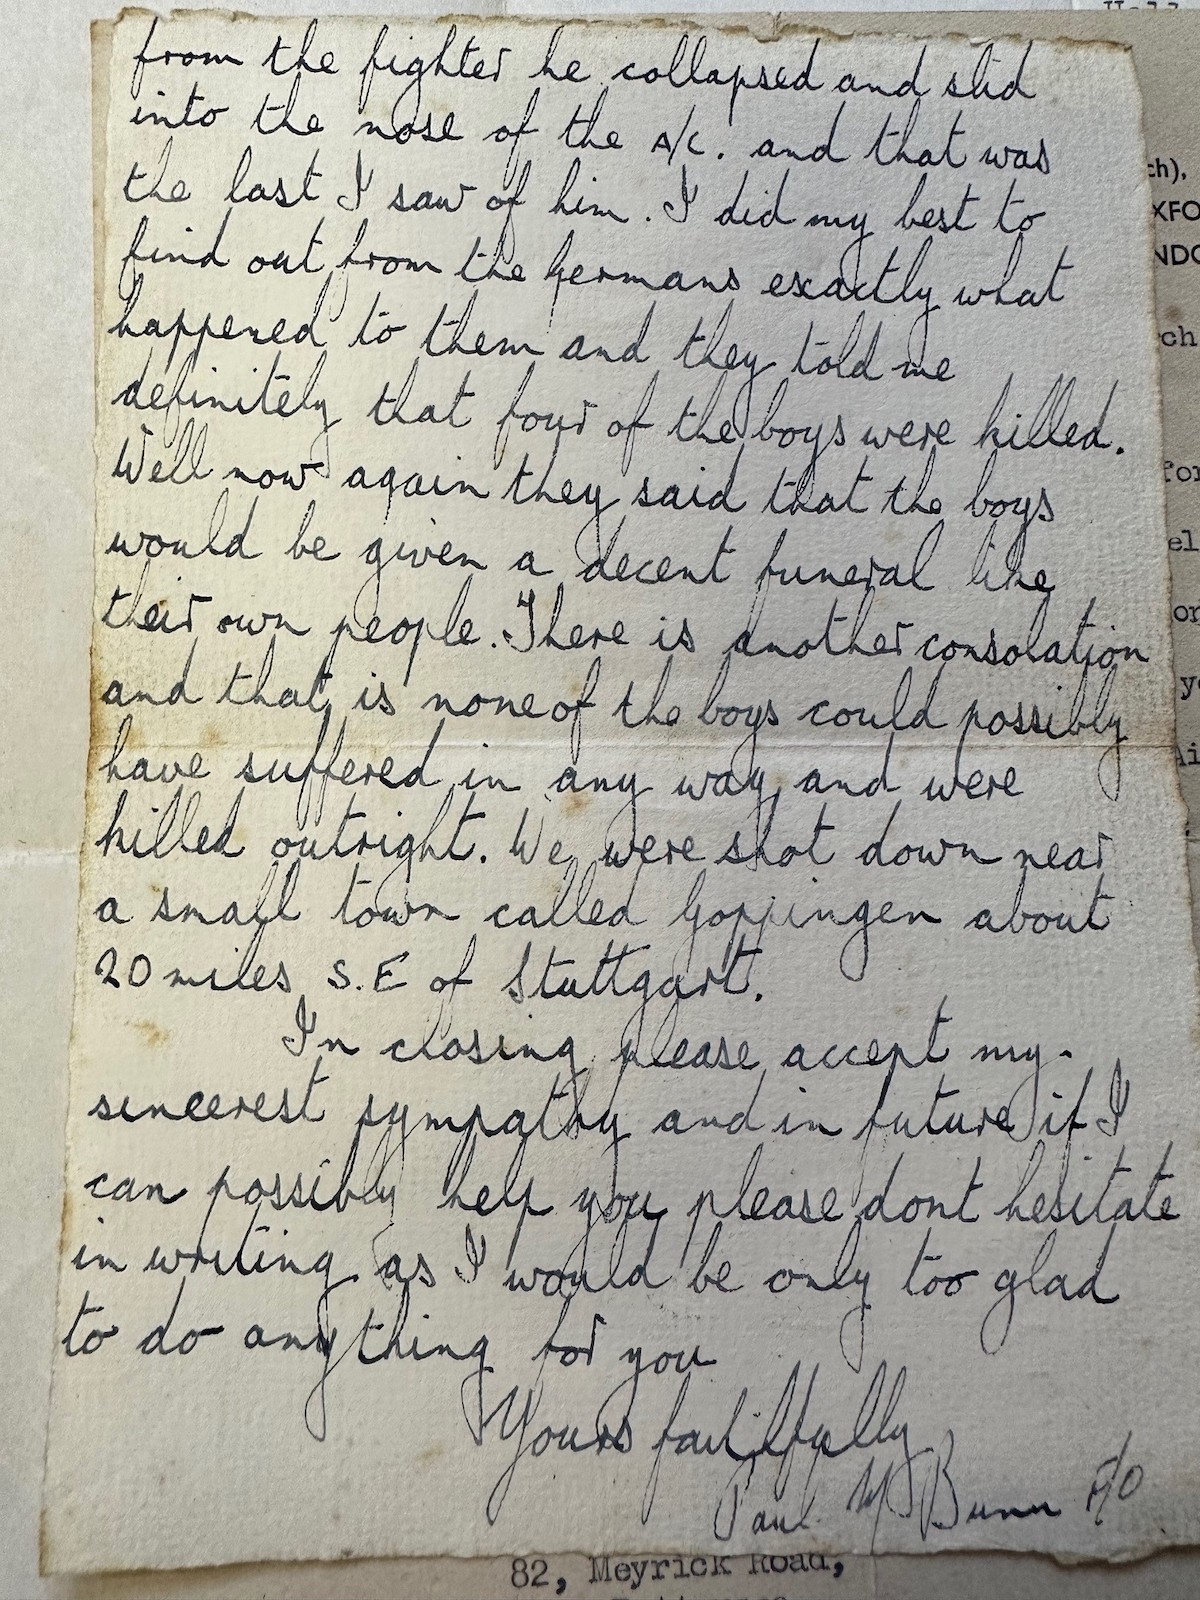 from the fighter he collapsed and slid
into the nose of the A/C. and that was
the last I saw of him. I did my best to
find out from the Germans exactly what
happened to them and they told me
definitely that four of the boys were killed.
Well now again they said that the boys
would be given a decent funeral like
their own people. There is another consolation
and that is none of the boys could possibly
have suffered in any way and were
killed outright. We were shot down near
a small town called Goppingen about
20 miles S.E of Stuttgart.
In closing please accept my
sincerest sympathy and in future if I
can possibly help you please dont hesitate
in writing as I would be only too glad
to do anything for you
Yours faithfully
Paul Bunn F/O
82, Meyrick Road,
ch),
XFO
NDO
ch
for
el
or
y
Ai